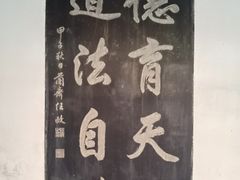 德育天
道法自
甲子秋日蕭齋任政